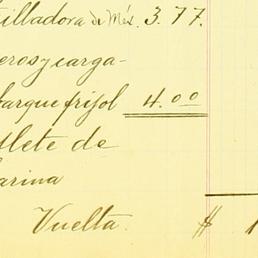 tilladora de Méx. 3.77.
eros y carga-
barque frijol 4.00
flete de
arina
Vuelta. $ 1